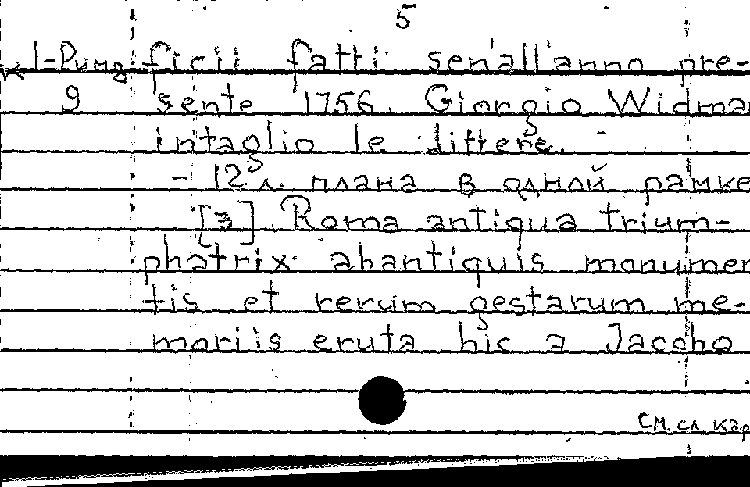 5
К 1-Рим ficii fatti sen'all'anno pre-
9 sente 1756. Giorgio Widman
intaglio le littere.
- 12 л. плана в одной рамке
[3] Roma antiqua trium-
phatrix abantiquis monumen
tis et rerum gestarum me-
moriis eruta hic a Jacobo
См. сл. кар